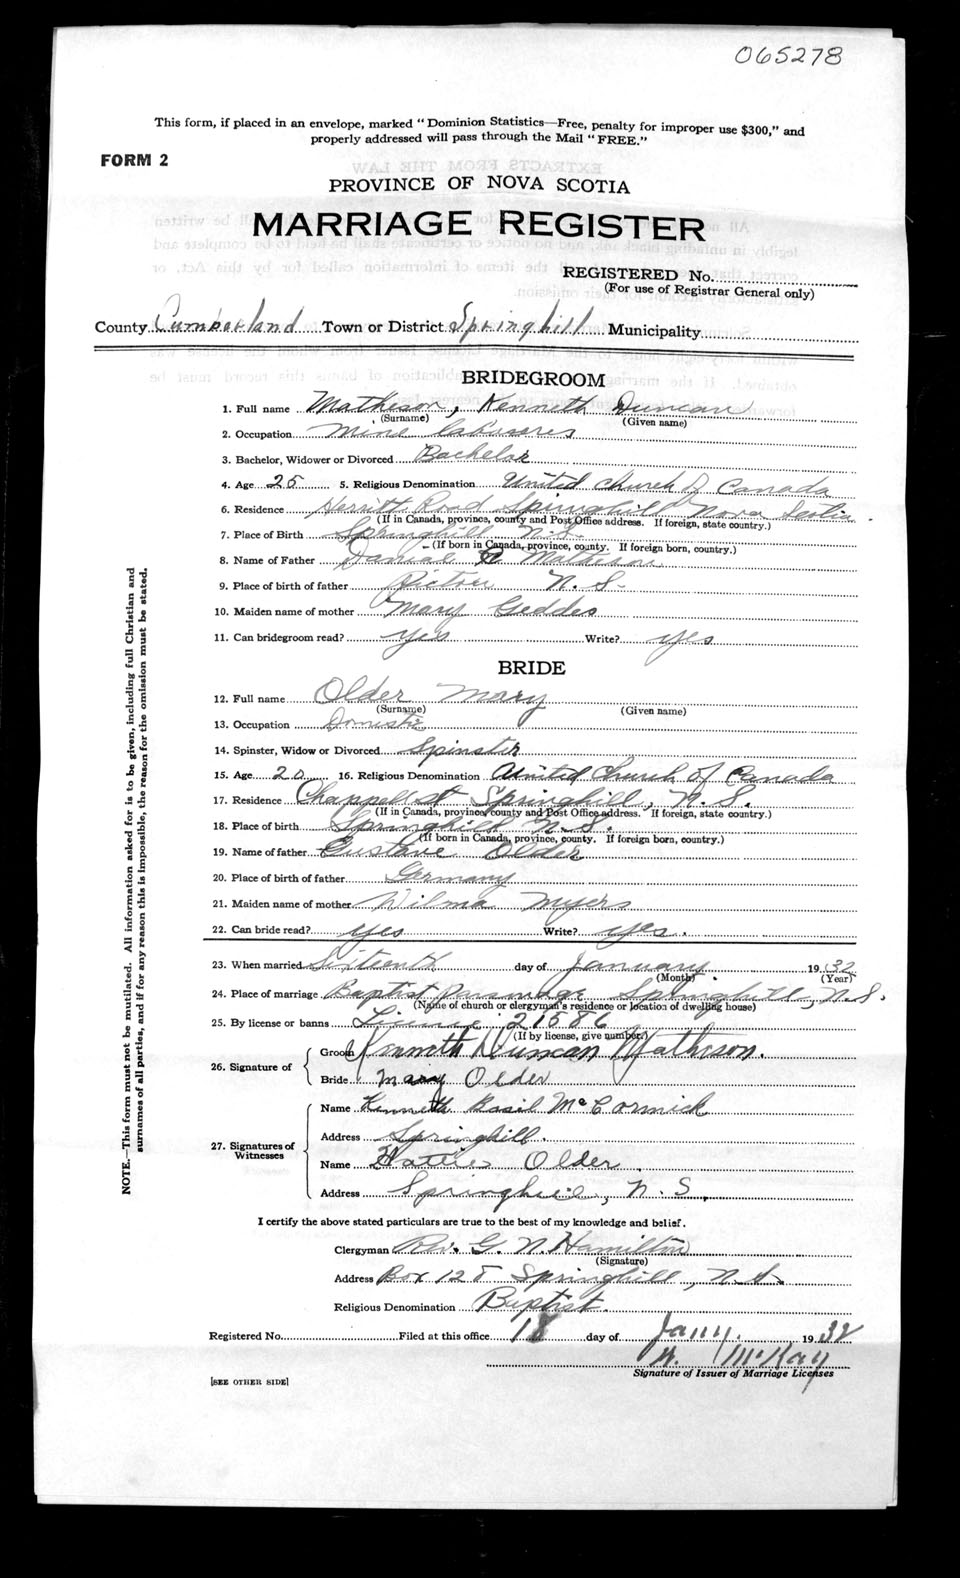 065278
This form, if placed in an envelope, marked "Dominion Statistics—Free, penalty for improper use $300," and
properly addressed will pass through the Mail "FREE."
FORM 2
PROVINCE OF NOVA SCOTIA
MARRIAGE REGISTER
REGISTERED No.
(For use of Registrar General only)
County Cumberland Town or District Springhill Municipality
BRIDEGROOM
1. Full name Matheson, Kenneth Duncan
(Surname) (Given name)
2. Occupation Mine
3. Bachelor, Widower or Divorced Bachelor
4. Age 25 5. Religious Denomination United Church of Canada
6. Residence Herritt Road Springhill Nova Scotia.
(If in Canada, province, county and Post Office address. If foreign, state country.)
7. Place of Birth Springhill N.S.
(If born in Canada, province, county. If foreign born, country.)
8. Name of Father Matheson
9. Place of birth of father Pictou N.S.
10. Maiden name of mother Mary Geddes
11. Can bridegroom read? yes Write? yes
BRIDE
12. Full name Older Mary
(Surname) (Given name)
13. Occupation Domestic
14. Spinster, Widow or Divorced Spinster
15. Age 20 16. Religious Denomination United Church of Canada
17. Residence Chappell St Springhill, N.S.
(If in Canada, province, county and Post Office address. If foreign, state country.)
18. Place of birth Springhill N.S.
(If born in Canada, province, county. If foreign born, country.)
19. Name of father Gustave Older
20. Place of birth of father Germany
21. Maiden name of mother Wilma Myers
22. Can bride read? yes Write? yes.
23. When married Sixteenth day of January 1932
(Month) (Year)
24. Place of marriage Baptist Parsonage Springhill, N.S.
(Name of church or clergyman's residence or location of dwelling house)
25. By license or banns License 21586
(If by license, give number.)
26. Signature of
Groom Kenneth Duncan Matheson.
Bride Mary Older
27. Signatures of Witnesses
Name Kenneth Basil McCormick
Address Springhill.
Name Hattie Older
Address Springhill, N.S.
I certify the above stated particulars are true to the best of my knowledge and belief.
Clergyman Rev. G. N. Hamilton
(Signature)
Address Box 128 Springhill, N.S.
Religious Denomination Baptist.
Registered No. Filed at this office 18 day of Jany. 1932
McKay
Signature of Issuer of Marriage Licenses
[SEE OTHER SIDE]
NOTE.—This form must not be mutilated. All information asked for is to be given, including full Christian and
surnames of all parties, and if for any reason this is impossible, the reason for the omission must be stated.